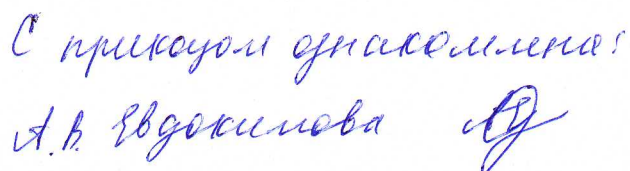 С приказом ознакомлена:
А.В. Евдокимова